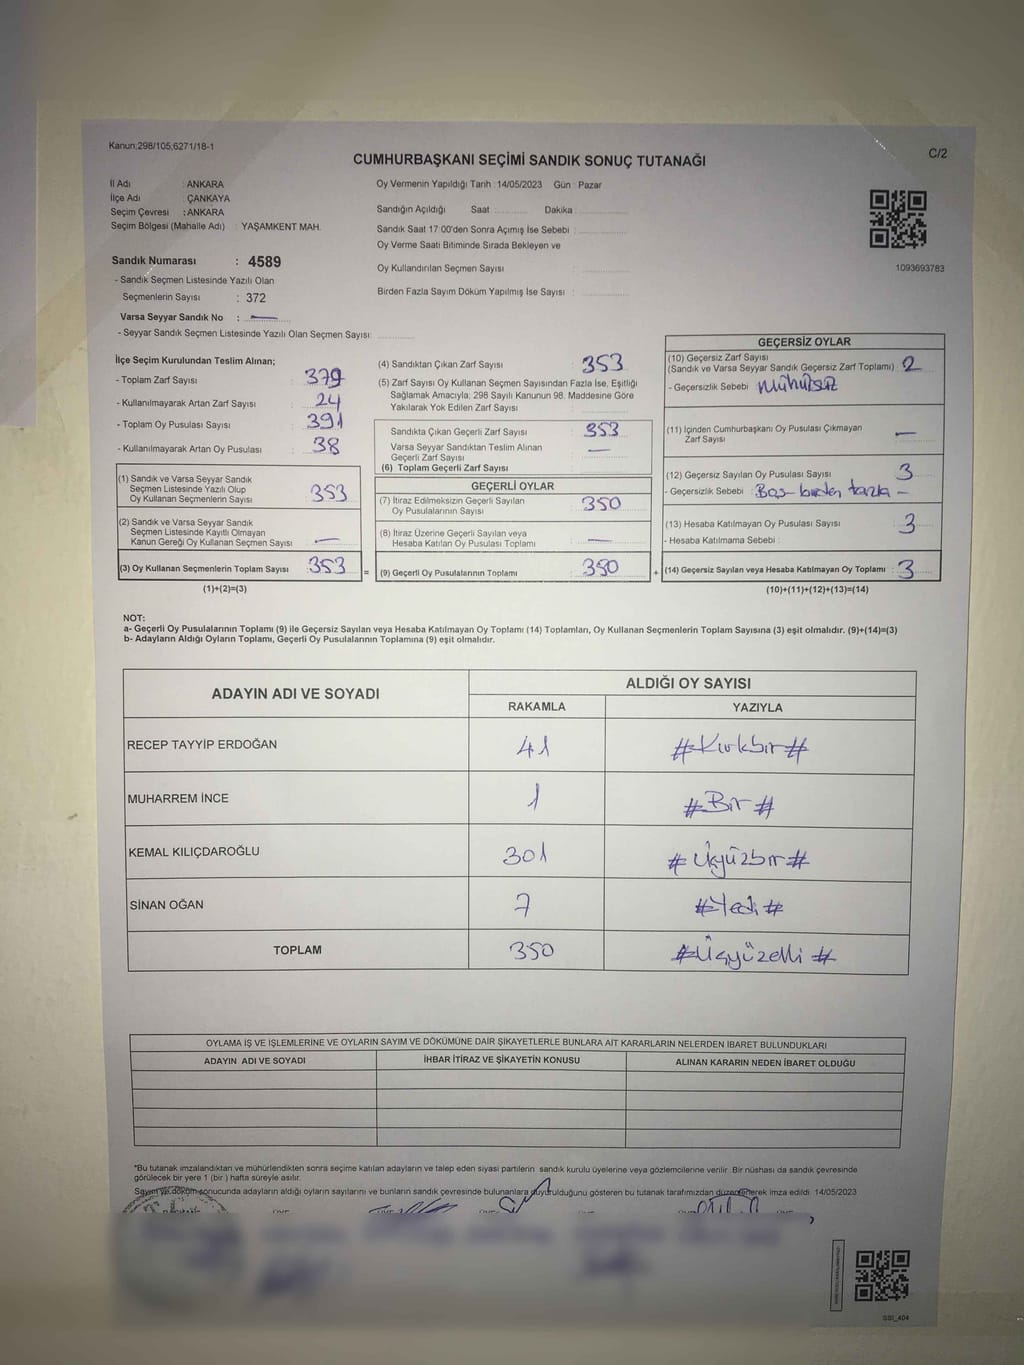 Kanun:298/105;6271/18-1
C/2
CUMHURBAŞKANI SEÇİMİ SANDIK SONUÇ TUTANAĞI
İl Adı : ANKARA
İlçe Adı : ÇANKAYA
Seçim Çevresi : ANKARA
Seçim Bölgesi (Mahalle Adı) : YAŞAMKENT MAH.
Sandık Numarası : 4589
- Sandık Seçmen Listesinde Yazılı Olan
Seçmenlerin Sayısı : 372
Varsa Seyyar Sandık No : —
- Seyyar Sandık Seçmen Listesinde Yazılı Olan Seçmen Sayısı:
Oy Vermenin Yapıldığı Tarih :14/05/2023 Gün : Pazar
Sandığın Açıldığı Saat : Dakika :
Sandık Saat 17:00'den Sonra Açımış İse Sebebi :
Oy Verme Saati Bitiminde Sırada Bekleyen ve
Oy Kullandırılan Seçmen Sayısı :
Birden Fazla Sayım Döküm Yapılmış İse Sayısı :
1093693783
İlçe Seçim Kurulundan Teslim Alınan;
- Toplam Zarf Sayısı : 379
- Kullanılmayarak Artan Zarf Sayısı : 24
- Toplam Oy Pusulası Sayısı : 391
- Kullanılmayarak Artan Oy Pusulası : 38
(1) Sandık ve Varsa Seyyar Sandık
Seçmen Listesinde Yazılı Olup
Oy Kullanan Seçmenlerin Sayısı : 353
(2) Sandık ve Varsa Seyyar Sandık
Seçmen Listesinde Kayıtlı Olmayan
Kanun Gereği Oy Kullanan Seçmen Sayısı : —
(3) Oy Kullanan Seçmenlerin Toplam Sayısı : 353
(1)+(2)=(3)
(4) Sandıktan Çıkan Zarf Sayısı : 353
(5) Zarf Sayısı Oy Kullanan Seçmen Sayısından Fazla İse, Eşitliği
Sağlamak Amacıyla; 298 Sayılı Kanunun 98. Maddesine Göre
Yakılarak Yok Edilen Zarf Sayısı :
Sandıkta Çıkan Geçerli Zarf Sayısı : 353
Varsa Seyyar Sandıktan Teslim Alınan
Geçerli Zarf Sayısı : —
(6) Toplam Geçerli Zarf Sayısı :
GEÇERLİ OYLAR
(7) İtiraz Edilmeksizin Geçerli Sayılan
Oy Pusulalarının Sayısı : 350
(8) İtiraz Üzerine Geçerli Sayılan veya
Hesaba Katılan Oy Pusulası Toplamı : —
= (9) Geçerli Oy Pusulalarının Toplamı : 350 +
GEÇERSİZ OYLAR
(10) Geçersiz Zarf Sayısı
(Sandık ve Varsa Seyyar Sandık Geçersiz Zarf Toplamı) : 2
- Geçersizlik Sebebi : Mühürsüz
(11) İçinden Cumhurbaşkanı Oy Pusulası Çıkmayan
Zarf Sayısı : —
(12) Geçersiz Sayılan Oy Pusulası Sayısı : 3
- Geçersizlik Sebebi : Boş- birden fazla -
(13) Hesaba Katılmayan Oy Pusulası Sayısı : 3
- Hesaba Katılmama Sebebi :
(14) Geçersiz Sayılan veya Hesaba Katılmayan Oy Toplamı : 3
(10)+(11)+(12)+(13)=(14)
NOT:
a- Geçerli Oy Pusulalarının Toplamı (9) ile Geçersiz Sayılan veya Hesaba Katılmayan Oy Toplamı (14) Toplamları, Oy Kullanan Seçmenlerin Toplam Sayısına (3) eşit olmalıdır. (9)+(14)=(3)
b- Adayların Aldığı Oyların Toplamı, Geçerli Oy Pusulalarının Toplamına (9) eşit olmalıdır.
ADAYIN ADI VE SOYADI
ALDIĞI OY SAYISI
RAKAMLA YAZIYLA
RECEP TAYYİP ERDOĞAN 41 #Kırkbir#
MUHARREM İNCE 1 #Bir#
KEMAL KILIÇDAROĞLU 301 #Üçyüzbir#
SİNAN OĞAN 7 #Yedi#
TOPLAM 350 #Üçyüzelli#
OYLAMA İŞ VE İŞLEMLERİNE VE OYLARIN SAYIM VE DÖKÜMÜNE DAİR ŞİKAYETLERLE BUNLARA AİT KARARLARIN NELERDEN İBARET BULUNDUKLARI
ADAYIN ADI VE SOYADI İHBAR İTİRAZ VE ŞİKAYETİN KONUSU ALINAN KARARIN NEDEN İBARET OLDUĞU
*Bu tutanak imzalandıktan ve mühürlendikten sonra seçime katılan adayların ve talep eden siyasi partilerin sandık kurulu üyelerine veya gözlemcilerine verilir. Bir nüshası da sandık çevresinde
görülecek bir yere 1 (bir) hafta süreyle asılır.
Sayım ve döküm sonucunda adayların aldığı oyların sayılarını ve bunların sandık çevresinde bulunanlara duyurulduğunu gösteren bu tutanak tarafımızdan düzenlenerek imza edildi. 14/05/2023
SSI_404